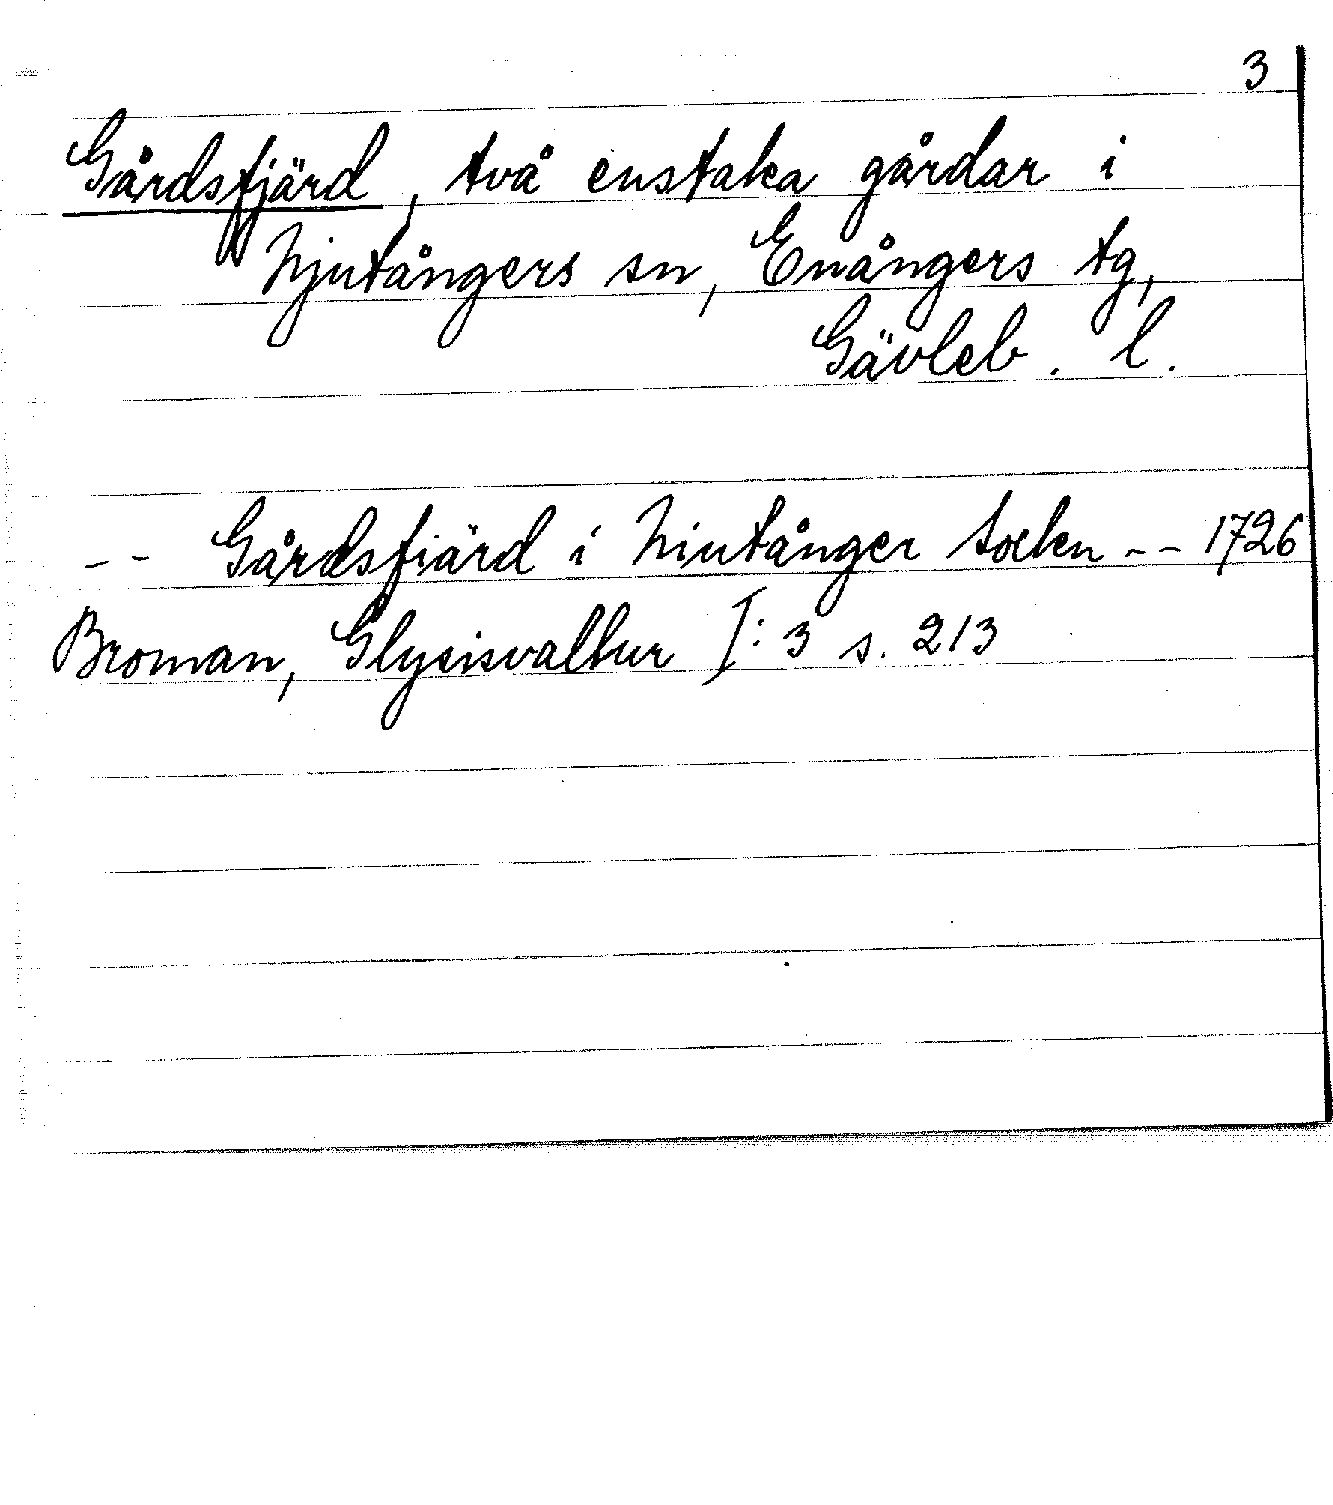 3
Gårdsfjärd, två enstaka gårdar i
Njutångers sn, Enångers tg,
Gävleb. l.
-- Gårdsfiärd i Niutånger soken -- 1726
Broman, Glysisvallur I:3 s. 213